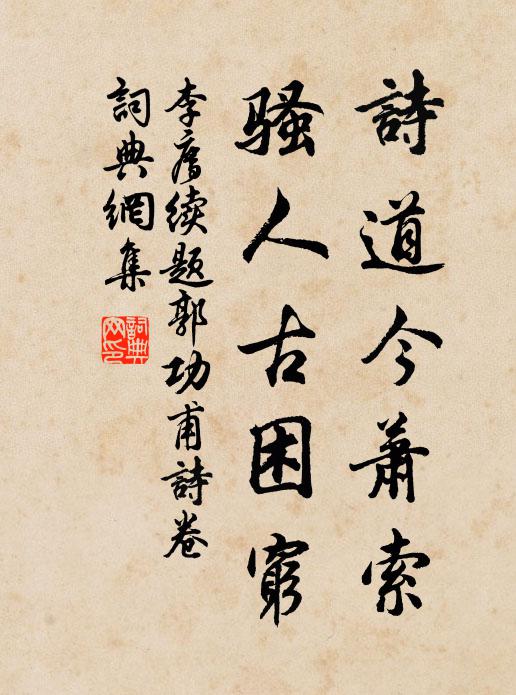 詩道今蕭索
騷人古困窮
李廌续题郭功甫詩卷
詞典網集
詞典網印